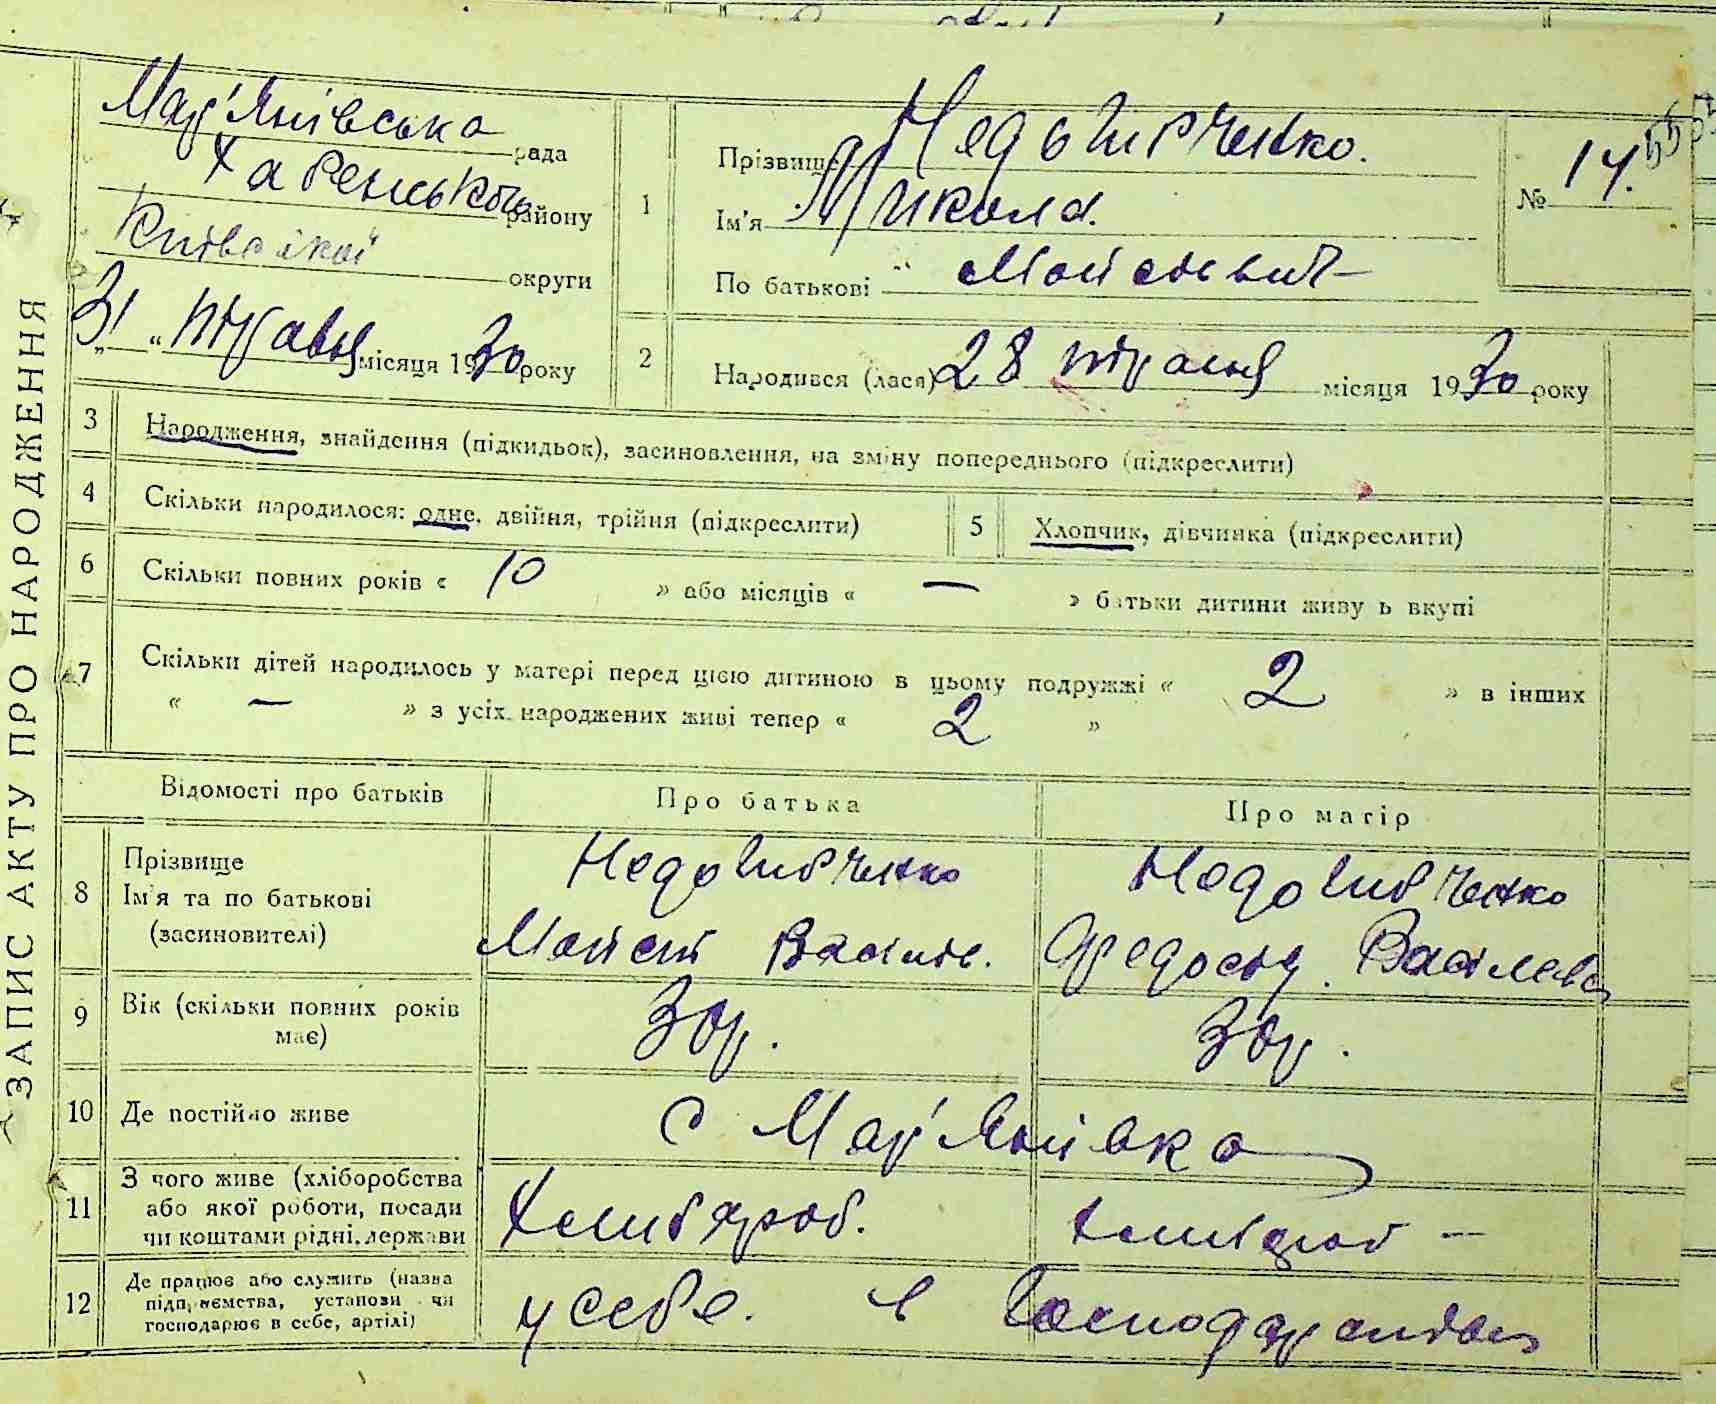 ЗАПИС АКТУ ПРО НАРОДЖЕННЯ
Мар'янівська рада
Хабенського району
Київської округи
31 " травня місяця 1930 року
1
Прізвище Недошивченко.
Ім'я Микола.
По батькові Мойсеєвич
№ 14.
2
Народився (лася) 28 травня місяця 1930 року
3 Народження, знайдення (підкидьок), засиновлення, на зміну попереднього (підкреслити)
4 Скільки народилося: одне, двійня, трійня (підкреслити) 5 Хлопчик, дівчинка (підкреслити)
6 Скільки повних років « 10 » або місяців « — » батьки дитини живуть вкупі
7 Скільки дітей народилось у матері перед цією дитиною в цьому подружжі « 2 » в інших
« — » з усіх народжених живі тепер « 2 »
Відомості про батьків Про батька Про матір
8 Прізвище
Ім'я та по батькові
(засиновителі)
Недошивченко
Мойсей Василів.
Недошивченко
Федосія Василева
9 Вік (скільки повних років
має)
30р. 30р.
10 Де постійно живе с Мар'янівка
11 З чого живе (хліборобства
або якої роботи, посади
чи коштами рідні, держави
Хлібороб. Хлібороб —
12 Де працює або служить (назва
підприємства, установи чи
господарює в себе, артілі)
у себе. в господарстві